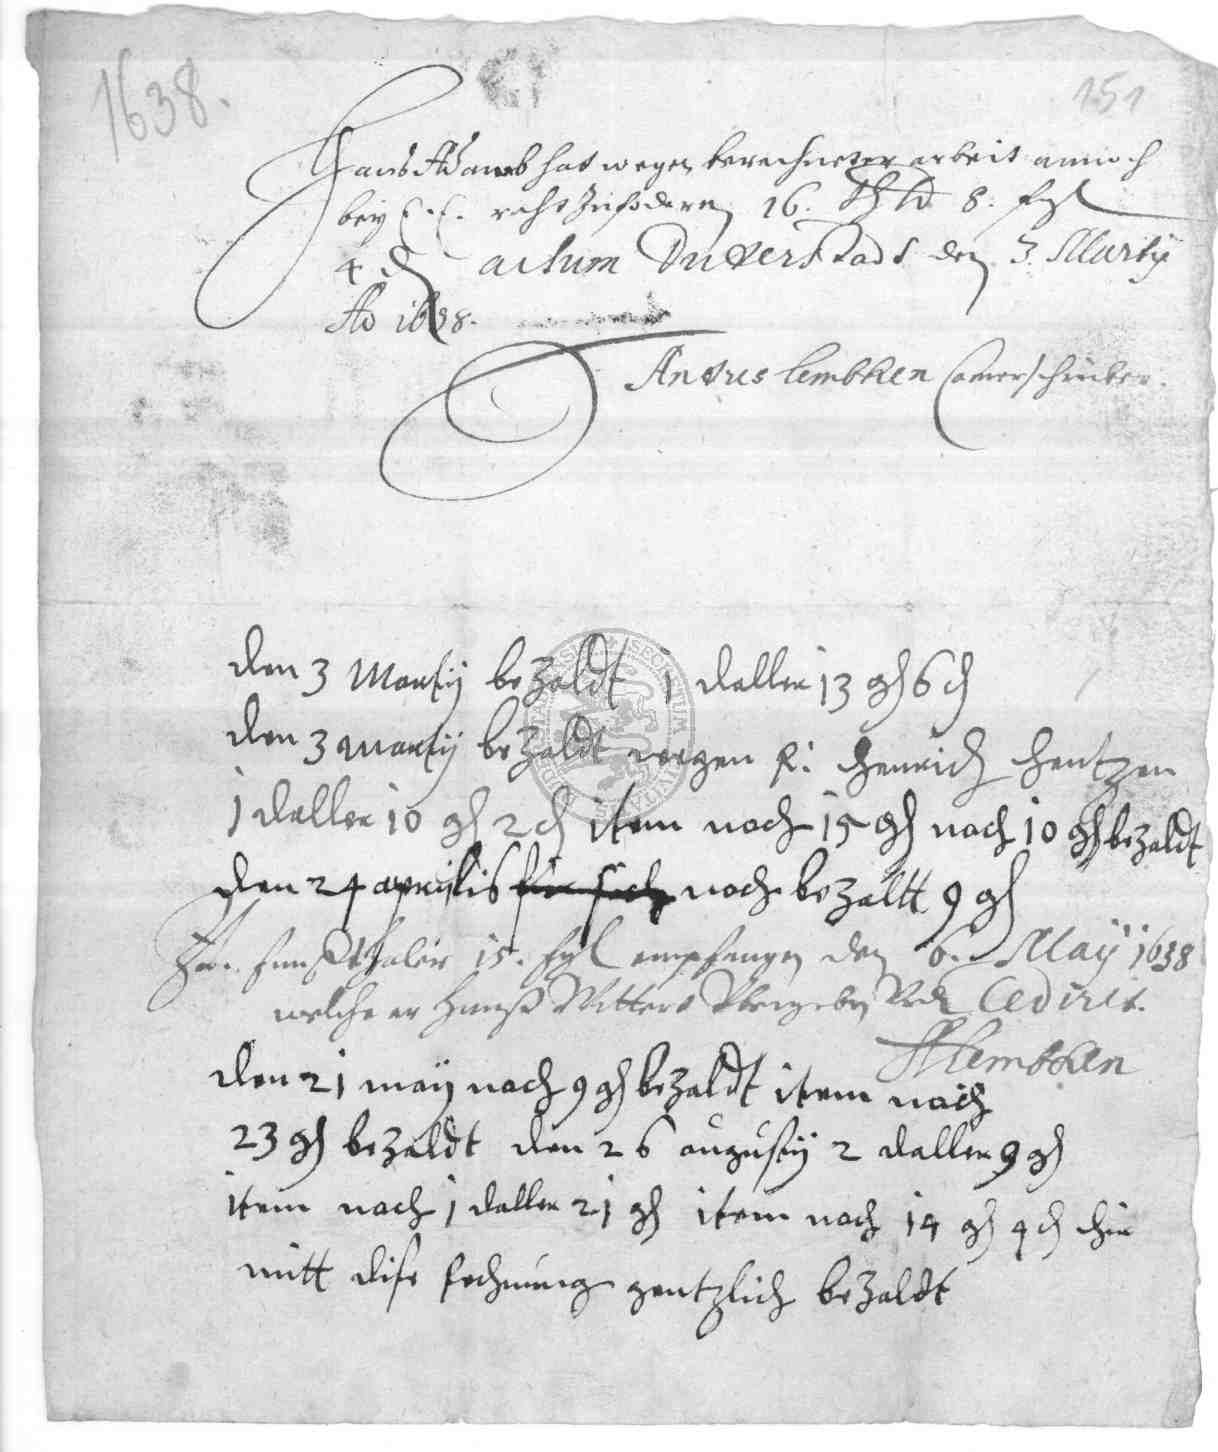 1638.
151
Hans Adams hat wegen berechneter arbeit annoch
bey E. E. raht Zufodern 16. thlr 8. fgl
4 d actum Duderstadt den 3. Martij
Ao 1638.
Andres Lembken Camerschriber.
den 3 Martij bezaldt 1 daller 13 gh 6 d
den 3 martij bezaldt wegen h: Henrich Hentzen
1 daller 10 gh 2 d item noch 15 gh noch 10 gh bezaldt
den 24 aprilis noch bezaltt 9 gh
funf thaler 15. fgl empfangen den 6. May 1638
welche er Hanß Witters Vbergeben Vnd Cediret.
ALembken
den 21 maij noch 9 gh bezaldt item noch
23 gh bezaldt den 26 augustij 2 daller 9 gh
item noch 1 daller 21 gh item noch 14 gh 4 d hir
mitt dise rechnung gentzlich bezaldt